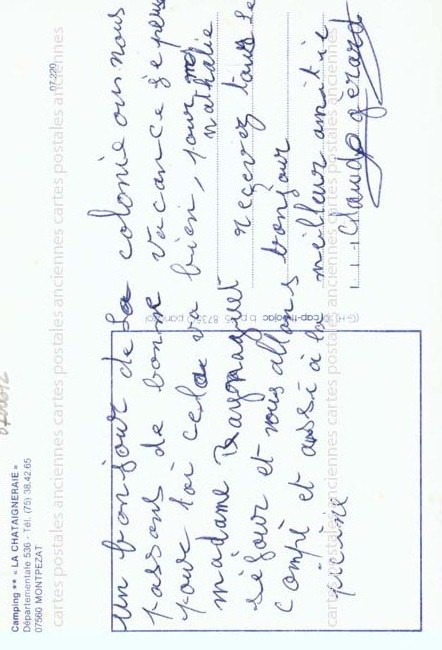 Camping ** « LA CHATAIGNERAIE »
Départementale 536 - Tél. (75) 38.42.65
07560 MONTPEZAT
07.220
cartes postales anciennes cartes postales anciennes cartes postales anciennes
cartes postales anciennes cartes postales anciennes cartes postales anciennes
un bonjour de La colonie ou nous
passons de bonne vacance je
pour toi cela va bien, pour
nathalie
madame recevez tous Le
séjour et nous allons bonjour
et aussi à la meilleur amitié
piscine
claude gérard
cap-theojac b.p.